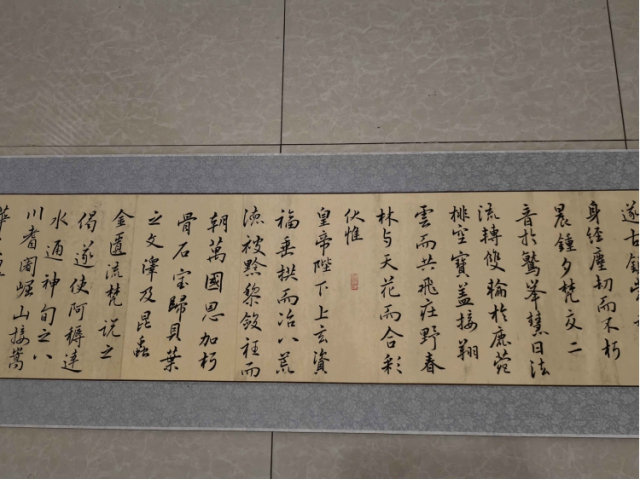 遂古
身經塵劫而不朽
晨鍾夕梵交二
音於鷲峯慧日法
流轉雙輪於鹿菀
排空寶蓋接翔
雲而共飛莊野春
林与天花而合彩
伏惟
皇帝陛下上玄資
福垂拱而治八荒
德被黔黎斂衽而
朝萬國恩加朽
骨石室歸貝葉
之文澤及昆蟲
金匱流梵說之
偈遂使阿耨達
水通神旬之八
川耆闍崛山接嵩
華